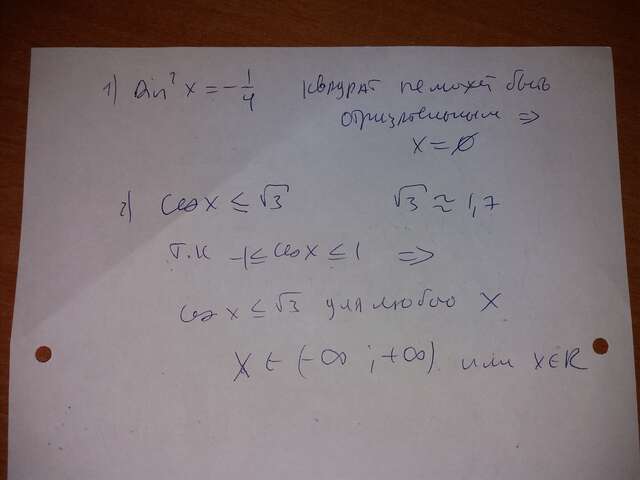 1) sin² x = -1/4 квадрат не может быть
отрицательным ⇒
x = ∅
2) cos x ≤ √3 √3 ≈ 1,7
т.к -1 ≤ cos x ≤ 1 ⇒
cos x ≤ √3 для любого x
x ∈ (-∞; +∞) или x ∈ ℝ